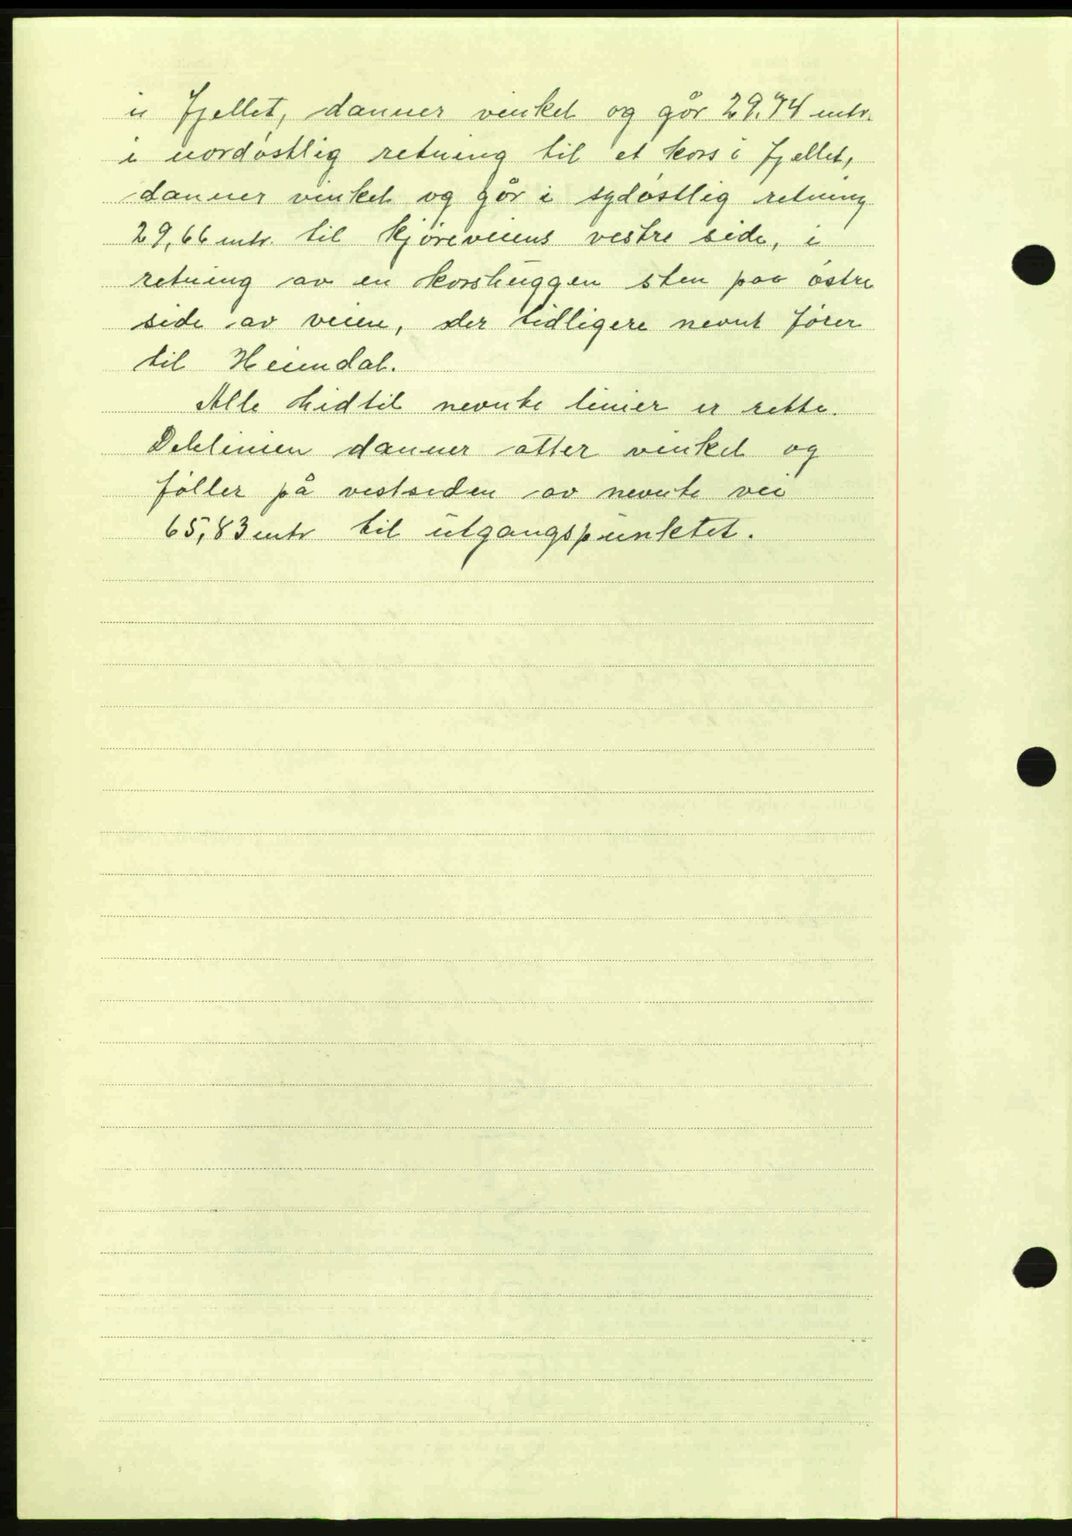 i Fjellet, danner vinkel og går 29.74 mtr.
i nordøstlig retning til et kors i Fjellet,
danner vinkel og går i sydøstlig retning
29,66 mtr. til kjøreveiens vestre side, i
retning av en korshuggen sten paa østre
side av veien, der tidligere nevnt fører
til Heimdal.
Alle hidtil nevnte linier er rette.
Delelinien danner atter vinkel og
føller på vestsiden av nevnte vei
65,83 mtr til utgangspunktet.